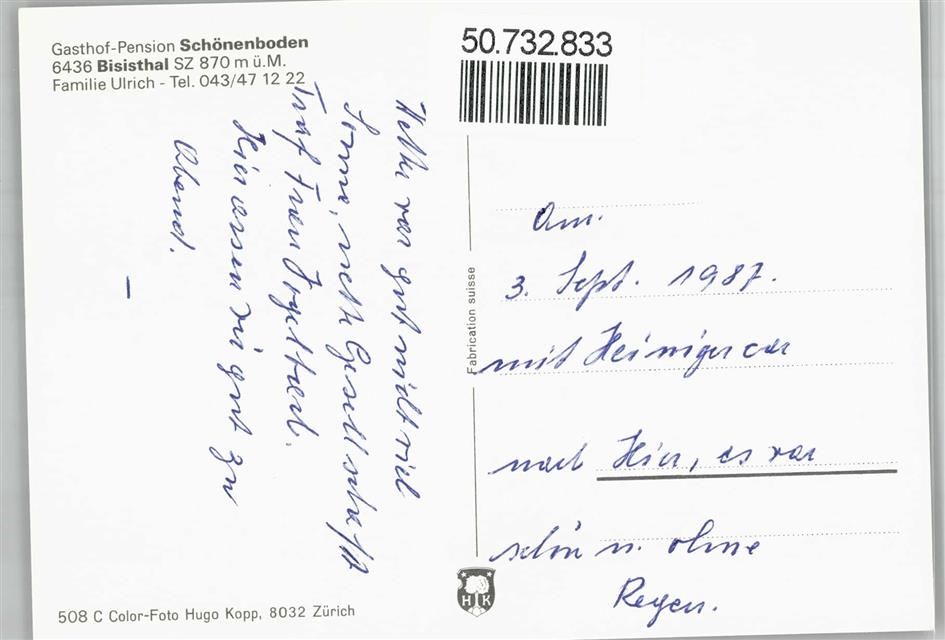 Gasthof-Pension Schönenboden
6436 Bisisthal SZ 870 m ü.M.
Familie Ulrich - Tel. 043/47 12 22
50.732.833
Am.
3. Sept. 1987.
mit Heinigercar
nach Hier, es war
schön u. ohne
Regen.
war gut nicht viel
Sonne, nette Gesellschaft
Traf Frau Vogel
Hier assen wir gut zu
Abend.
–
Fabrication suisse
H K
508 C Color-Foto Hugo Kopp, 8032 Zürich